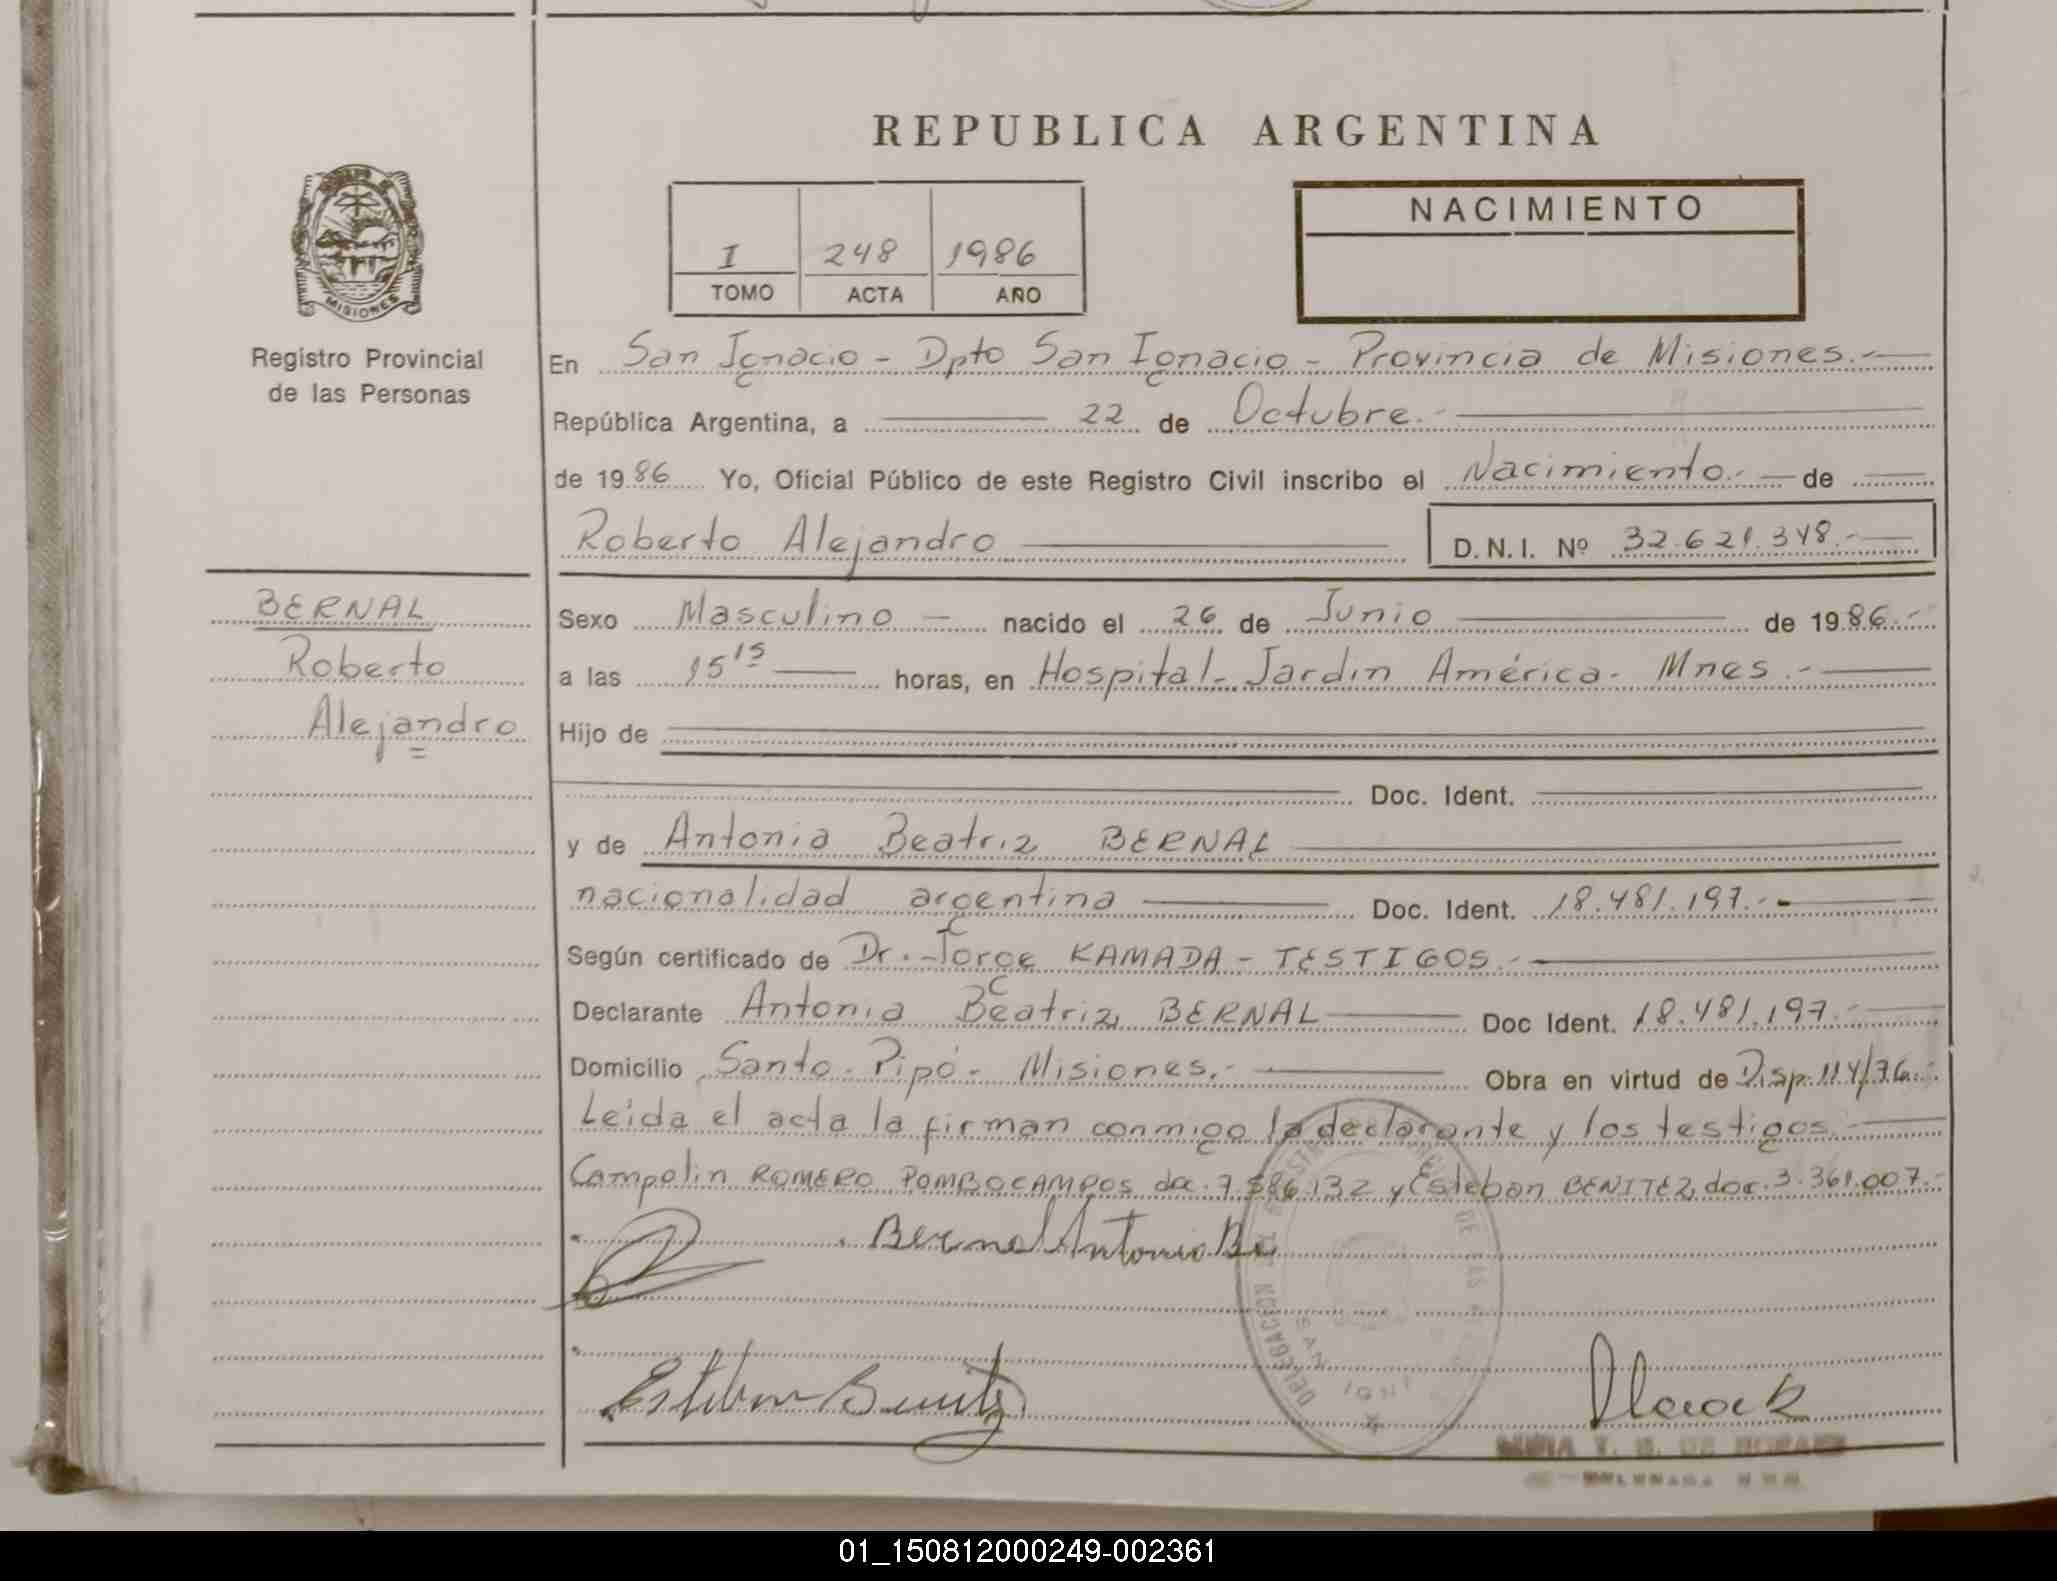 REPUBLICA ARGENTINA
MISIONES
Registro Provincial
de las Personas
I 248 1986
TOMO ACTA AÑO
NACIMIENTO
En San Ignacio - Dpto San Ignacio - Provincia de Misiones.-
República Argentina, a 22 de Octubre.-
de 1986 Yo, Oficial Público de este Registro Civil inscribo el Nacimiento.- de
Roberto Alejandro D.N.I. Nº 32.621.348.-
BERNAL
Roberto
Alejandro
Sexo Masculino nacido el 26 de Junio de 1986.-
a las 15 15 horas, en Hospital - Jardin América - Mnes.-
Hijo de
Doc. Ident.
y de Antonia Beatriz BERNAL
nacionalidad argentina Doc. Ident. 18.481.197.-
Según certificado de Dr. Jorge KAMADA - TESTIGOS.-
Declarante Antonia Beatriz BERNAL Doc Ident. 18.481.197.-
Domicilio Santo - Pipó - Misiones.- Obra en virtud de Disp. 114/76.-
Leida el acta la firman conmigo la declarante y los testigos
Campolin ROMERO POMBOCAMPOS doc. 7.586.132 y Esteban BENITEZ, doc. 3.361.007.-
Bernal Antonia B
Esteban Benitez
DELEGACION
01_150812000249-002361